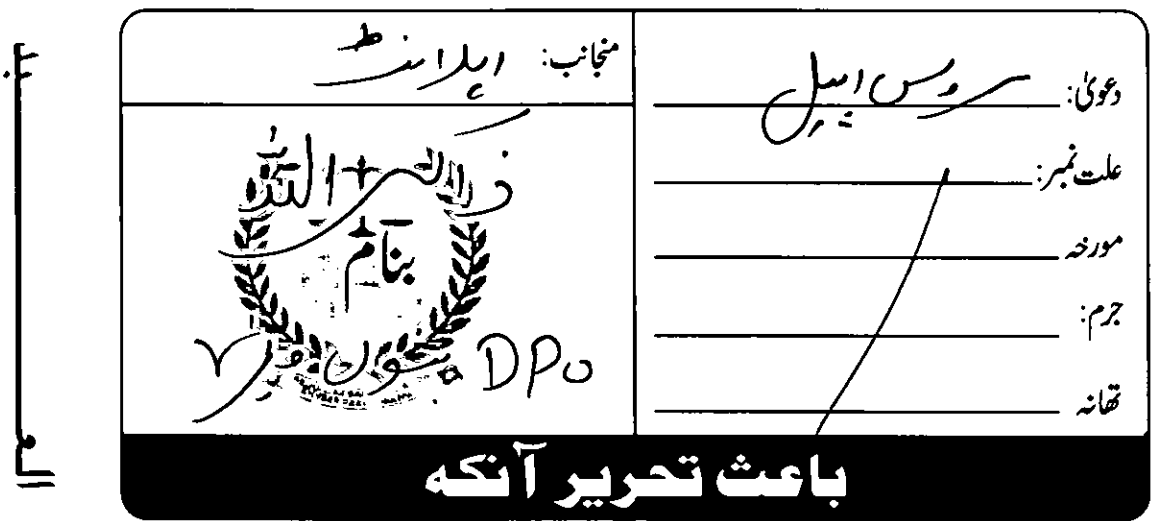 دعویٰ: سروس اپیل
علت نمبر:
مورخہ
جرم:
تھانہ
منجانب: اپیلانٹ
بنام
DPO بنوں
باعث تحریر آنکہ